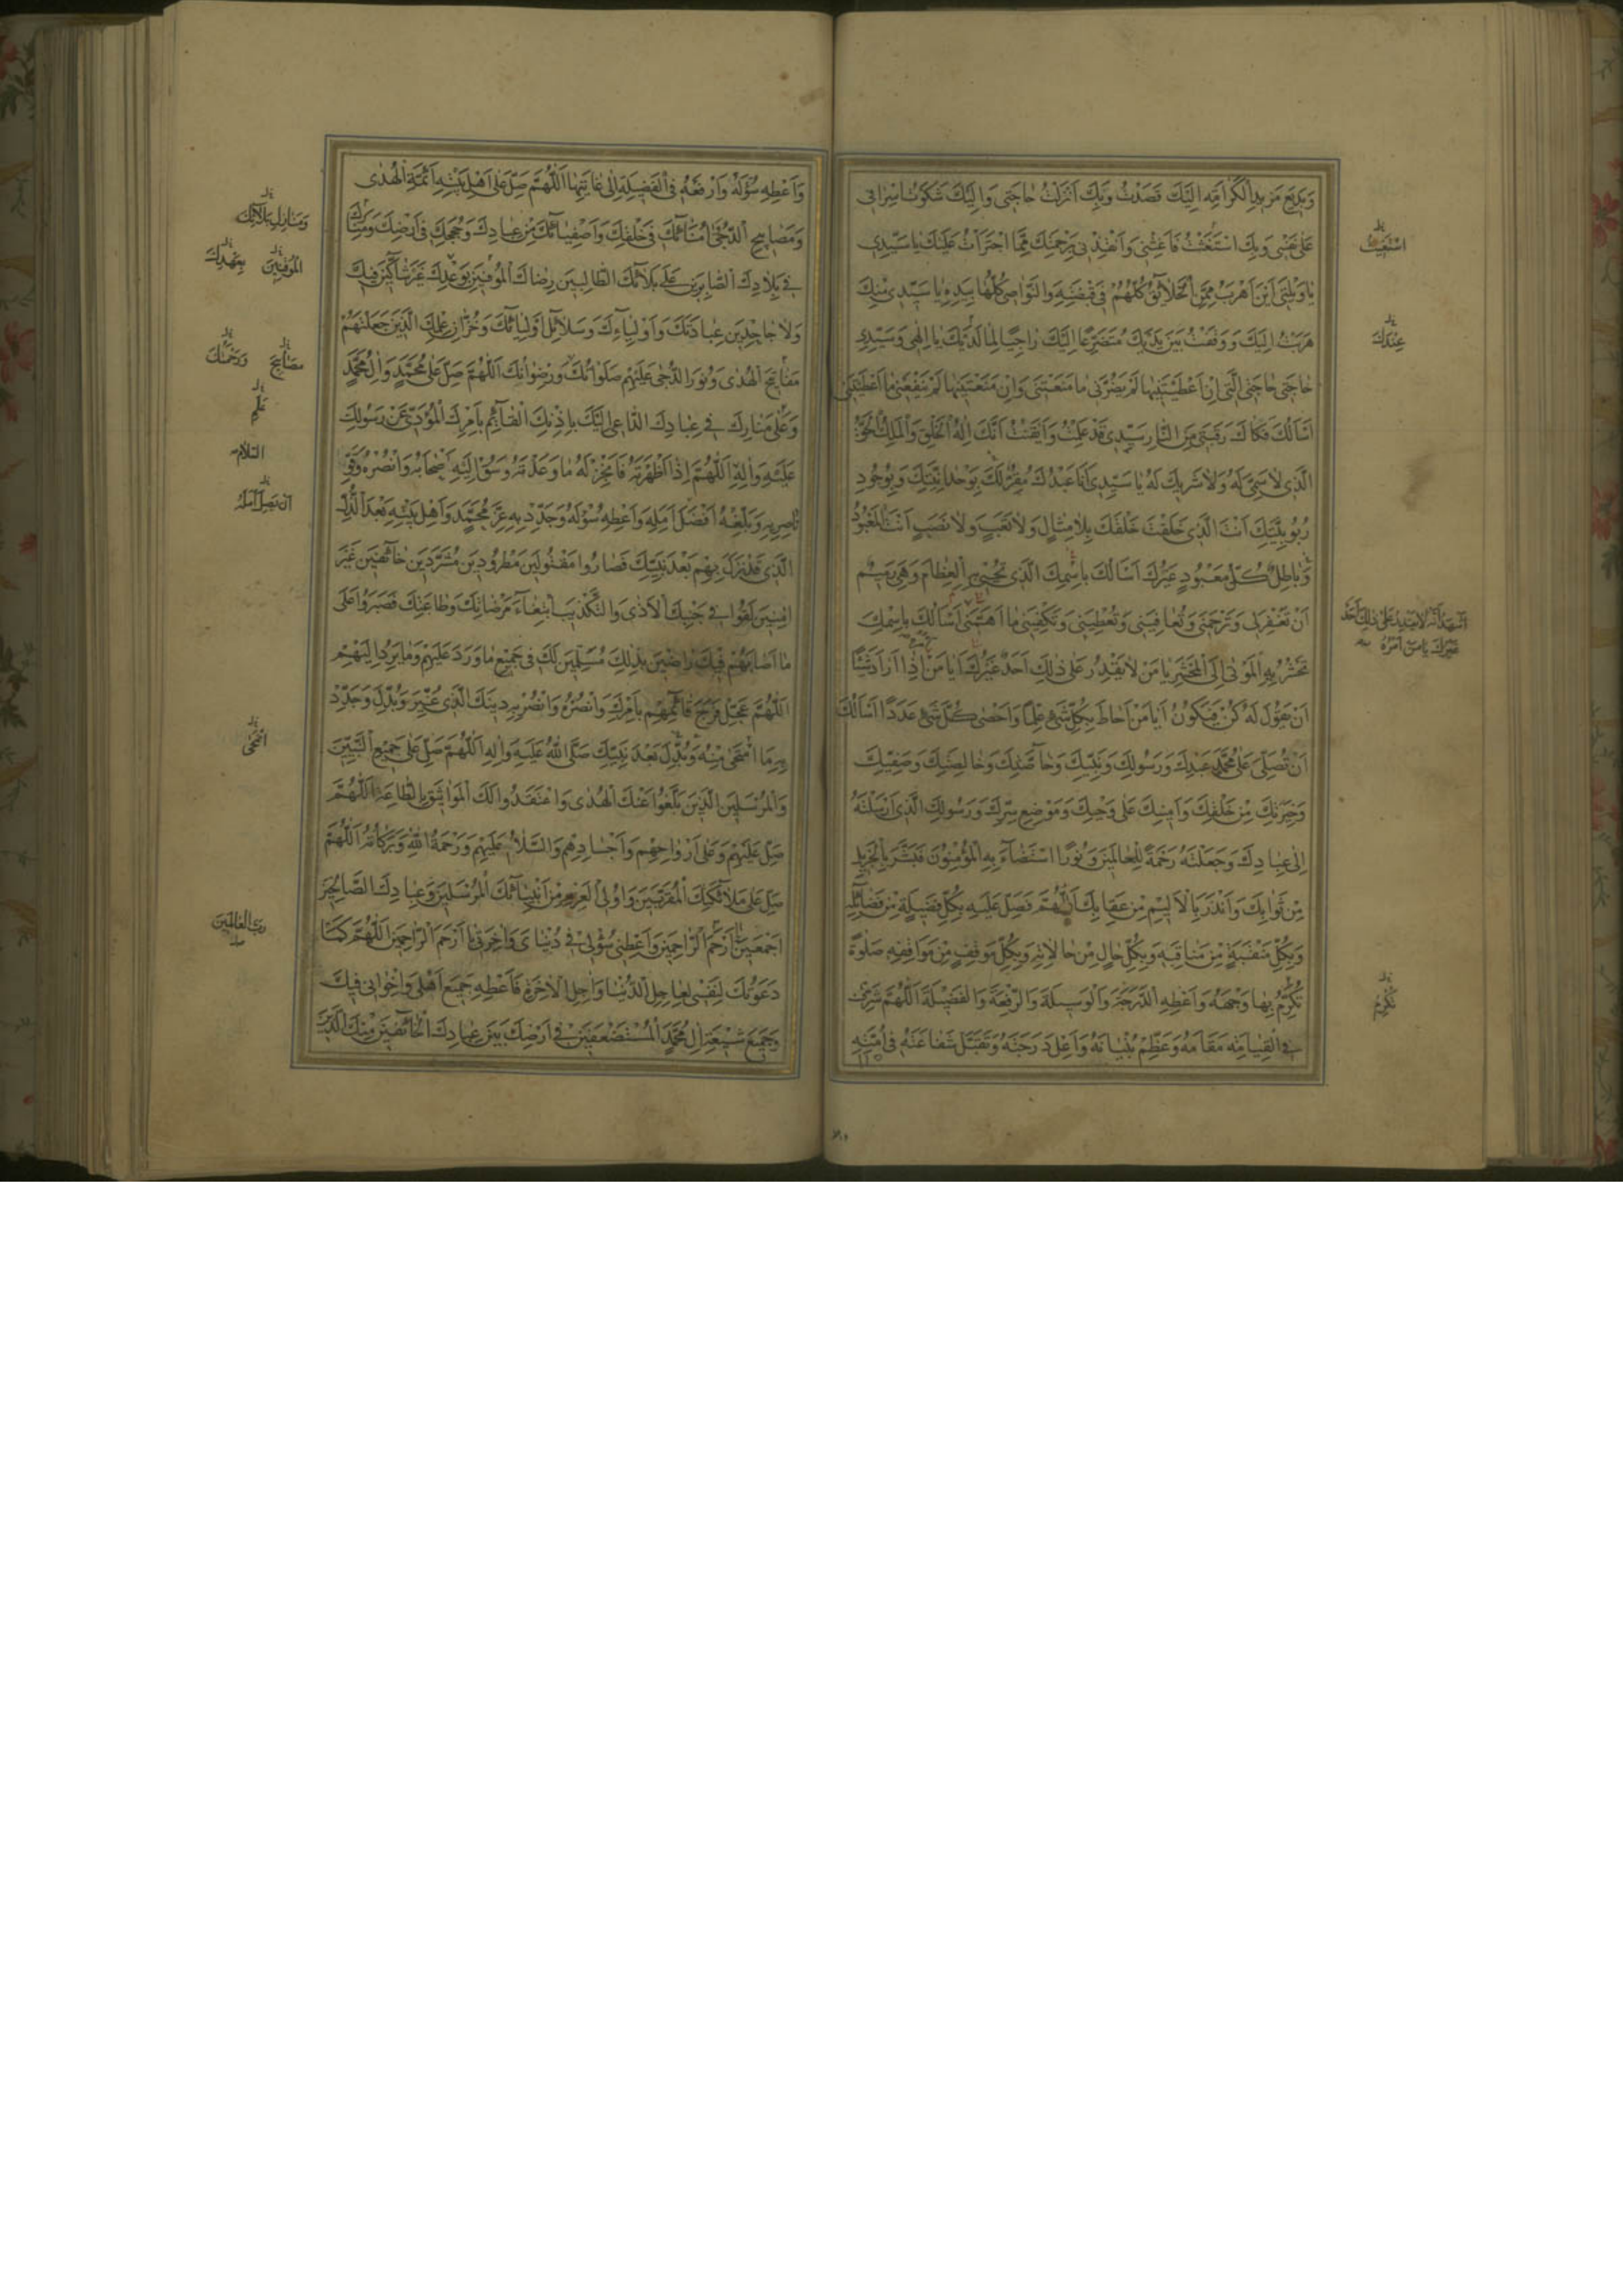 وَبَدِيعِ مَزِيدِ الْكَرَامَةِ اِلَيْكَ قَصَدْتُ وَبِكَ اَنْزَلْتُ حَاجَتِي وَاِلَيْكَ شَكَوْتُ اِسْرَافِي
عَلَى نَفْسِي وَبِكَ اسْتَغَثْتُ فَاَغِثْنِي وَاَنْقِذْنِي بِرَحْمَتِكَ مِمَّا اجْتَرَأْتُ عَلَيْكَ يَا سَيِّدِي
يَا وَيْلَتِي اَيْنَ اَهْرُبُ مِمَّنِ الْخَلَائِقُ كُلُّهُمْ فِي قَبْضَتِهِ وَالنَّوَاصِي كُلُّهَا بِيَدِهِ يَا سَيِّدِي مِنْكَ
هَرَبْتُ اِلَيْكَ وَوَقَفْتُ بَيْنَ يَدَيْكَ مُتَضَرِّعًا اِلَيْكَ رَاجِيًا لِمَا لَدَيْكَ يَا اِلٰهِي وَسَيِّدِي
حَاجَتِي حَاجَتِي الَّتِي اِنْ اَعْطَيْتَنِيهَا لَمْ يَضُرَّنِي مَا مَنَعْتَنِي وَاِنْ مَنَعْتَنِيهَا لَمْ يَنْفَعْنِي مَا اَعْطَيْتَنِي
اَسْأَلُكَ فَكَاكَ رَقَبَتِي مِنَ النَّارِ سَيِّدِي قَدْ عَلِمْتُ وَاَيْقَنْتُ اَنَّكَ اِلٰهُ الْخَلْقِ وَالْمَلِكُ الْحَقُّ
الَّذِي لَا سَمِيَّ لَهُ وَلَا شَرِيكَ لَهُ يَا سَيِّدِي اَنَا عَبْدُكَ مُقِرٌّ لَكَ بِوَحْدَانِيَّتِكَ وَبِوُجُودِ
رُبُوبِيَّتِكَ اَنْتَ الَّذِي خَلَقْتَ خَلْقَكَ بِلَا مِثَالٍ وَلَا تَعَبٍ وَلَا نَصَبٍ اَنْتَ الْمَعْبُودُ
وَبَاطِلٌ كُلُّ مَعْبُودٍ غَيْرُكَ اَسْأَلُكَ بِاسْمِكَ الَّذِي تُحْيِي بِهِ الْعِظَامَ وَهِيَ رَمِيمٌ
اَنْ تَغْفِرَ لِي وَتَرْحَمَنِي وَتُعَافِيَنِي وَتُعْطِيَنِي وَتَكْفِيَنِي مَا اَهَمَّنِي اَسْأَلُكَ بِاسْمِكَ
تَحْشُرُ بِهِ الْمَوْتٰى اِلَى الْمَحْشَرِ يَا مَنْ لَا يَقْدِرُ عَلَى ذٰلِكَ اَحَدٌ غَيْرُكَ اَيَا مَنْ اِذَا اَرَادَ شَيْئًا
اَنْ يَقُولَ لَهُ كُنْ فَيَكُونُ اَيَا مَنْ اَحَاطَ بِكُلِّ شَيْءٍ عِلْمًا وَاَحْصٰى كُلَّ شَيْءٍ عَدَدًا اَسْأَلُكَ
اَنْ تُصَلِّيَ عَلَى مُحَمَّدٍ عَبْدِكَ وَرَسُولِكَ وَنَبِيِّكَ وَخَاصَّتِكَ وَخَالِصَتِكَ وَصَفِيِّكَ
وَخِيَرَتِكَ مِنْ خَلْقِكَ وَاَمِينِكَ عَلَى وَحْيِكَ وَمَوْضِعِ سِرِّكَ وَرَسُولِكَ الَّذِي اَرْسَلْتَهُ
اِلَى عِبَادِكَ وَجَعَلْتَهُ رَحْمَةً لِلْعَالَمِينَ وَنُورًا اسْتَضَاءَ بِهِ الْمُؤْمِنُونَ فَبَشَّرَ بِالْجَزِيلِ
مِنْ ثَوَابِكَ وَاَنْذَرَ بِالْاَلِيمِ مِنْ عِقَابِكَ اَللّٰهُمَّ فَصَلِّ عَلَيْهِ بِكُلِّ فَضِيلَةٍ مِنْ فَضَائِلِهِ
وَبِكُلِّ مَنْقَبَةٍ مِنْ مَنَاقِبِهِ وَبِكُلِّ حَالٍ مِنْ حَالَاتِهِ وَبِكُلِّ مَوْقِفٍ مِنْ مَوَاقِفِهِ صَلٰوةً
تُكْرِمُ بِهَا وَجْهَهُ وَاَعْطِهِ الدَّرَجَةَ وَالْوَسِيلَةَ وَالرِّفْعَةَ وَالْفَضِيلَةَ اَللّٰهُمَّ شَرِّفْ
فِي الْقِيَامَةِ مَقَامَهُ وَعَظِّمْ بُنْيَانَهُ وَاَعْلِ دَرَجَتَهُ وَتَقَبَّلْ شَفَاعَتَهُ فِي اُمَّتِهِ
عِنْدَكَ
غَيْرُكَ يَا مَنْ اَمْرُهُ
تُكْرِمُ
وَاَعْطِهِ سُؤْلَهُ وَارْفَعْهُ فِي الْفَضِيلَةِ اِلَى غَايَتِهَا اَللّٰهُمَّ صَلِّ عَلَى اَهْلِ بَيْتِهِ اَئِمَّةِ الْهُدٰى
وَمَصَابِيحِ الدُّجٰى اُمَنَائِكَ فِي خَلْقِكَ وَاَصْفِيَائِكَ مِنْ عِبَادِكَ وَحُجَجِكَ فِي اَرْضِكَ وَمَنَارِكَ
فِي بِلَادِكَ الصَّابِرِينَ عَلَى بَلَائِكَ الطَّالِبِينَ رِضَاكَ الْمُوفِينَ بِوَعْدِكَ غَيْرَ شَاكِّينَ فِيكَ
وَلَا جَاحِدِينَ عِبَادَتَكَ وَاَوْلِيَاءِكَ وَسَلَائِلِ اَوْلِيَائِكَ وَخُزَّانِ عِلْمِكَ الَّذِينَ جَعَلْتَهُمْ
مَفَاتِيحَ الْهُدٰى وَنُورَ الدُّجٰى عَلَيْهِمْ صَلَوَاتُكَ وَرِضْوَانُكَ اَللّٰهُمَّ صَلِّ عَلَى مُحَمَّدٍ وَاٰلِ مُحَمَّدٍ
وَعَلَى مَنَارِكَ فِي عِبَادِكَ الدَّاعِي اِلَيْكَ بِاِذْنِكَ الْقَائِمِ بِاَمْرِكَ الْمُؤَدِّي عَنْ رَسُولِكَ
عَلَيْهِ وَاٰلِهِ اَللّٰهُمَّ اِذَا اَظْهَرْتَهُ فَاَنْجِزْ لَهُ مَا وَعَدْتَهُ وَسُقْ اِلَيْهِ اَصْحَابَهُ وَانْصُرْهُ وَقَوِّ
نَاصِرِيهِ وَبَلِّغْهُ اَفْضَلَ اَمَلِهِ وَاَعْطِهِ سُؤْلَهُ وَجَدِّدْ بِهِ عِزَّ مُحَمَّدٍ وَاَهْلِ بَيْتِهِ بَعْدَ الذُّلِّ
الَّذِي قَدْ نَزَلَ بِهِمْ بَعْدَ نَبِيِّكَ فَصَارُوا مَقْتُولِينَ مَطْرُودِينَ مُشَرَّدِينَ خَائِفِينَ غَيْرَ
اٰمِنِينَ لَقُوا فِي جَنْبِكَ الْاَذٰى وَالتَّكْذِيبَ ابْتِغَاءَ مَرْضَاتِكَ وَطَاعَتِكَ فَصَبَرُوا عَلَى
مَا اَصَابَهُمْ فِيكَ رَاضِينَ بِذٰلِكَ مُسَلِّمِينَ لَكَ فِي جَمِيعِ مَا وَرَدَ عَلَيْهِمْ وَمَا يَرِدُ اِلَيْهِمْ
اَللّٰهُمَّ عَجِّلْ فَرَجَ قَائِمِهِمْ بِاَمْرِكَ وَانْصُرْهُ وَانْصُرْ بِهِ دِينَكَ الَّذِي غُيِّرَ وَبُدِّلَ وَجَدِّدْ
بِهِ مَا امْتَحٰى مِنْهُ وَبُدِّلَ بَعْدَ نَبِيِّكَ صَلَّى اللّٰهُ عَلَيْهِ وَاٰلِهِ اَللّٰهُمَّ صَلِّ عَلَى جَمِيعِ النَّبِيِّينَ
وَالْمُرْسَلِينَ الَّذِينَ بَلَّغُوا عَنْكَ الْهُدٰى وَاعْتَقَدُوا لَكَ الْمَوَاثِيقَ بِالطَّاعَةِ اَللّٰهُمَّ
صَلِّ عَلَيْهِمْ وَعَلَى اَرْوَاحِهِمْ وَاَجْسَادِهِمْ وَالسَّلَامُ عَلَيْهِمْ وَرَحْمَةُ اللّٰهِ وَبَرَكَاتُهُ اَللّٰهُمَّ
صَلِّ عَلَى مَلَائِكَتِكَ الْمُقَرَّبِينَ وَاُولِي الْعَزْمِ مِنْ اَنْبِيَائِكَ الْمُرْسَلِينَ وَعِبَادِكَ الصَّالِحِينَ
اَجْمَعِينَ يَا اَرْحَمَ الرَّاحِمِينَ وَاَعْطِنِي سُؤْلِي فِي دُنْيَايَ وَاٰخِرَتِي يَا اَرْحَمَ الرَّاحِمِينَ اَللّٰهُمَّ كَمَا
دَعَوْتُكَ لِنَفْسِي لِعَاجِلِ الدُّنْيَا وَاٰجِلِ الْاٰخِرَةِ فَاَعْطِهِ جَمِيعَ اَهْلِي وَاِخْوَانِي فِيكَ
وَجَمِيعَ شِيعَةِ اٰلِ مُحَمَّدٍ الْمُسْتَضْعَفِينَ فِي اَرْضِكَ بَيْنَ عِبَادِكَ الْخَائِفِينَ مِنْكَ الَّذِينَ
الْمُوفِينَ بِعَهْدِكَ
مَصَابِيحَ وَرَحْمَتُكَ
السَّلَام
اِمْتَحٰى
رَبَّ الْعَالَمِينَ